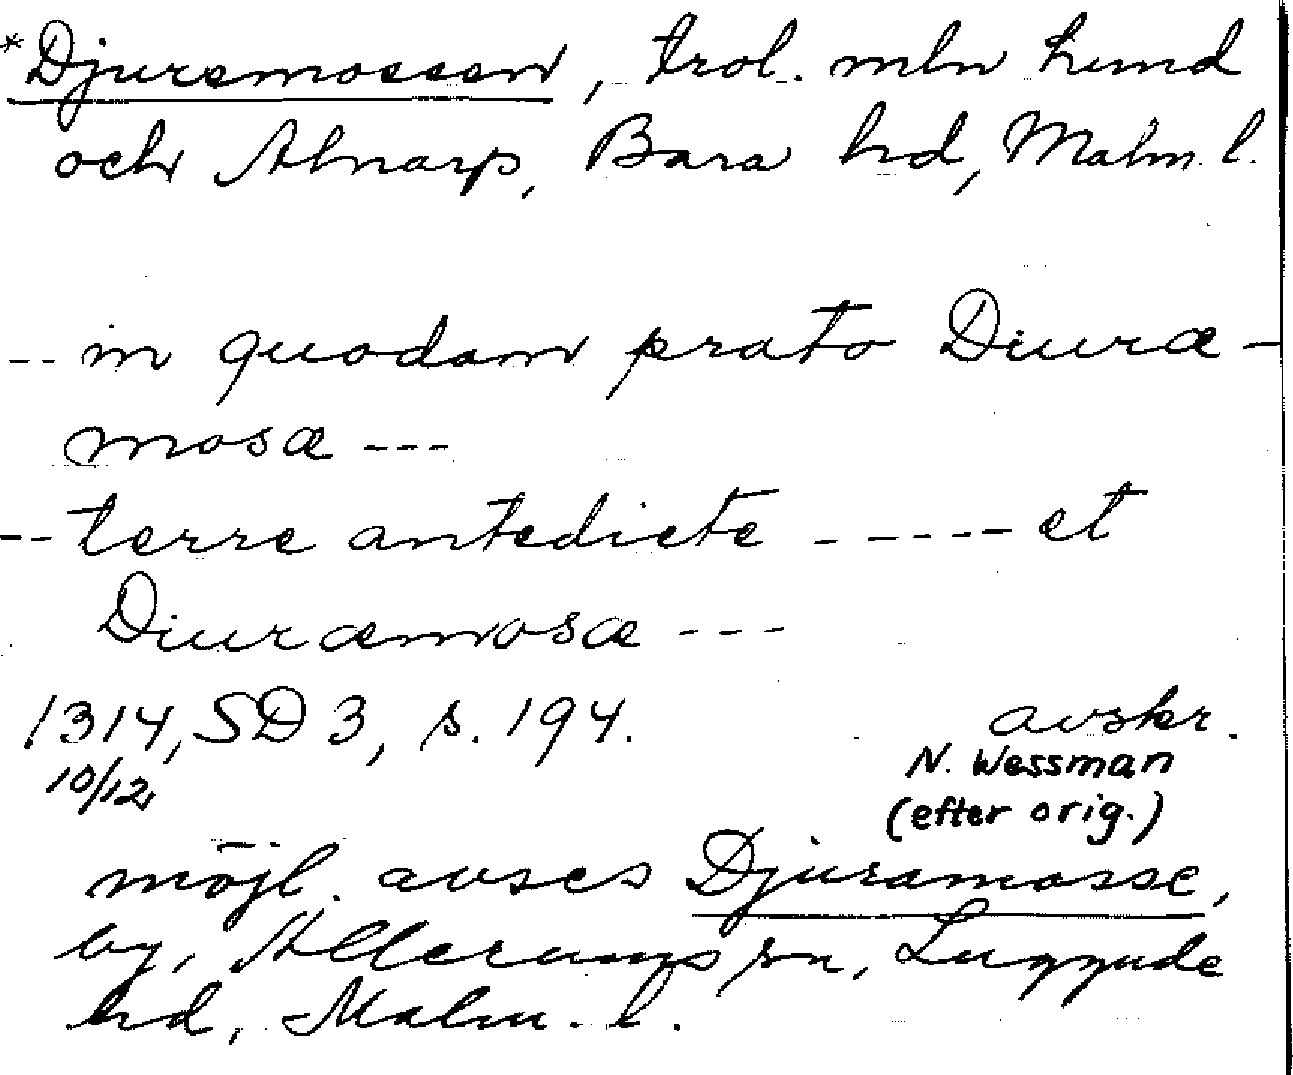 *Djursmossen, trol. mln Lund
och Alnarp, Bara hd, Malm. l.
-- in quodam prato Diuræ-
mosæ ---
-- terre antedicte ----- et
Diuræmosæ ---
1314, SD 3, s. 194. avskr.
10/12 N. Wessman
(efter orig.)
möjl. avses Djuramosse,
by, Allerums sn, Luggude
hd, Malm. l.